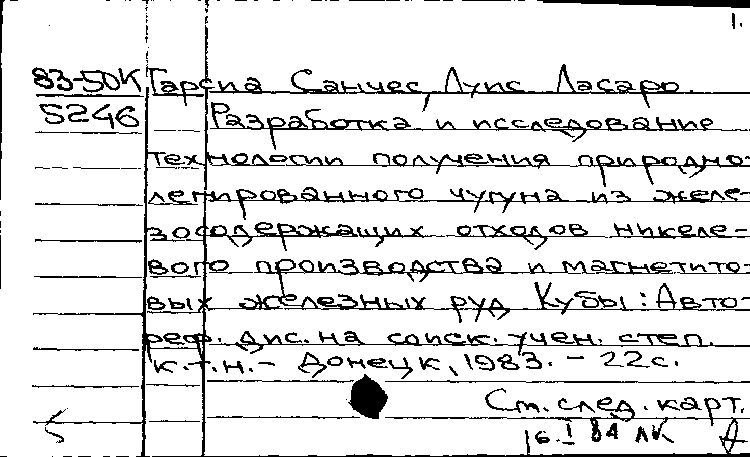 1.
83-50К Гарсиа Санчес, Луис Ласаро.
5246 Разработка и исследование
технологии получения природно-
легированного чугуна из желе-
зосодержащих отходов никеле-
вого производства и магнетито-
вых железных руд Кубы: Авто-
реф. дис. на соиск. учен. степ.
к.т.н. - Донецк, 1983. - 22 с.
См. след. карт.
16.I 84 ЛК